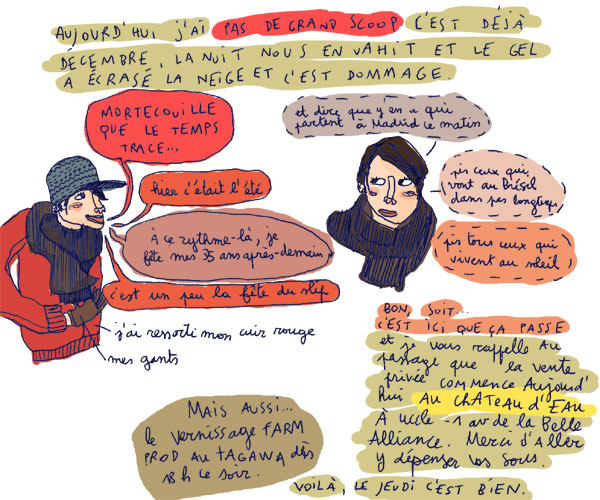 AUJOURD'HUI J'AI PAS DE GRAND SCOOP C'EST DÉJÀ
DÉCEMBRE, LA NUIT NOUS ENVAHIT ET LE GEL
A ÉCRASÉ LA NEIGE ET C'EST DOMMAGE.
MORTECOUILLE
QUE LE TEMPS
TRACE...
hier c'était l'été
À ce rythme-là, je
fête mes 35 ans après-demain
c'est un peu la fête du slip
j'ai ressorti mon cuir rouge
mes gants
et dire que y'en a qui
partent à Madrid ce matin
pis ceux qui
vont au Brésil
dans pas longtemps
pis tous ceux qui
vivent au soleil
BON, SOIT...
C'EST ICI QUE ÇA PASSE
et je vous rappelle au
passage que la vente
privée COMMENCE AUJOURD'
hui AU CHÂTEAU d'EAU
À UCCLE - 1 av de la Belle
Alliance. Merci d'Aller
y dépenser vos sous.
MAIS AUSSI...
le vernissage FARM
PROD AU TAGAWA dès
18h ce soir.
VOILÀ, LE JEUDI C'EST BIEN.